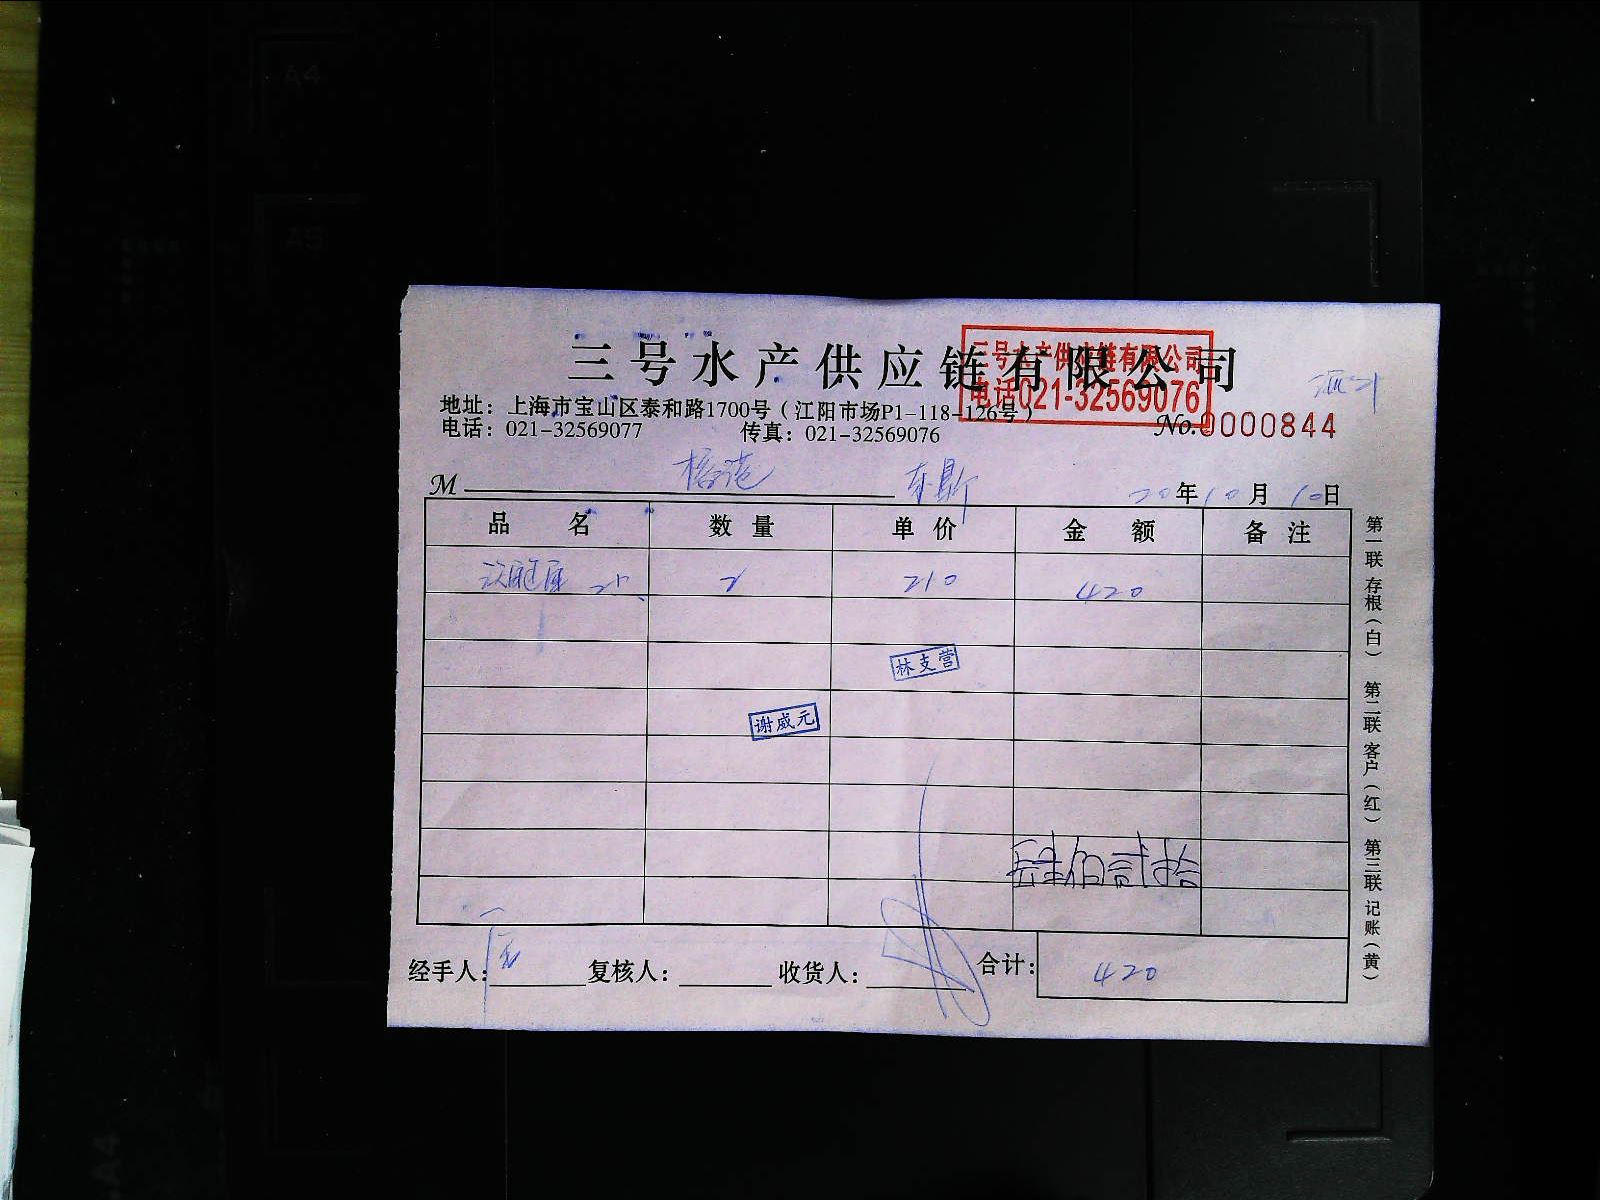 A4
A5
三号水产供应链有限公司
三号水产供应链有限公司
电话021-32569076
地址：上海市宝山区泰和路1700号（江阳市场P1-118-126号）
电话：021-32569077 传真：021-32569076
No.0000844
M
20年10月10日
品名 数量 单价 金额 备注
2 210 420
林支营
谢威元
肆佰贰拾
经手人： 复核人： 收货人： 合计： 420
第一联 存根（白） 第二联 客户（红） 第三联 记账（黄）
A4